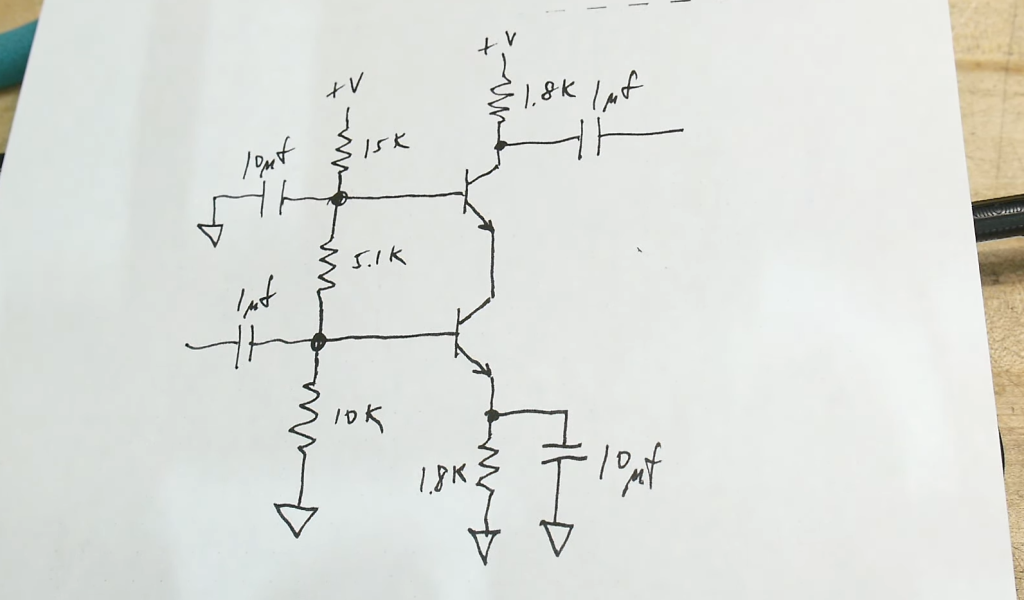 +V
+V
1.8K
1µf
10µf
15K
5.1K
1µf
10K
1.8K
10µf